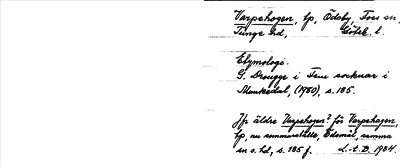 Varpehogen, tp, Ödsby, Foss sn,
Tunge hd, Göteb. l.
Etymologi.
G. Drougge i Fem socknar i
Munkedal, (1980), s. 185.
Jfr äldre Varpehogen? för Varpehagen,
tp, nu sommarställe, Ödsmål, samma
sn o. hd, s. 185 f. L-t D. 1984.